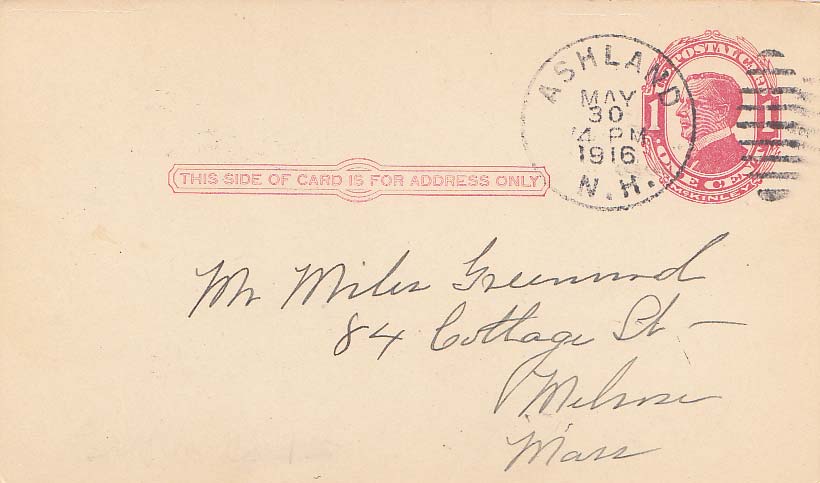 ASHLAND
MAY
30
4 PM
1916
N.H.
POSTAL CARD
1 1
ONE CENT
McKINLEY
THIS SIDE OF CARD IS FOR ADDRESS ONLY
Mr Miles Greenwood
84 Cottage St —
Melrose
Mass